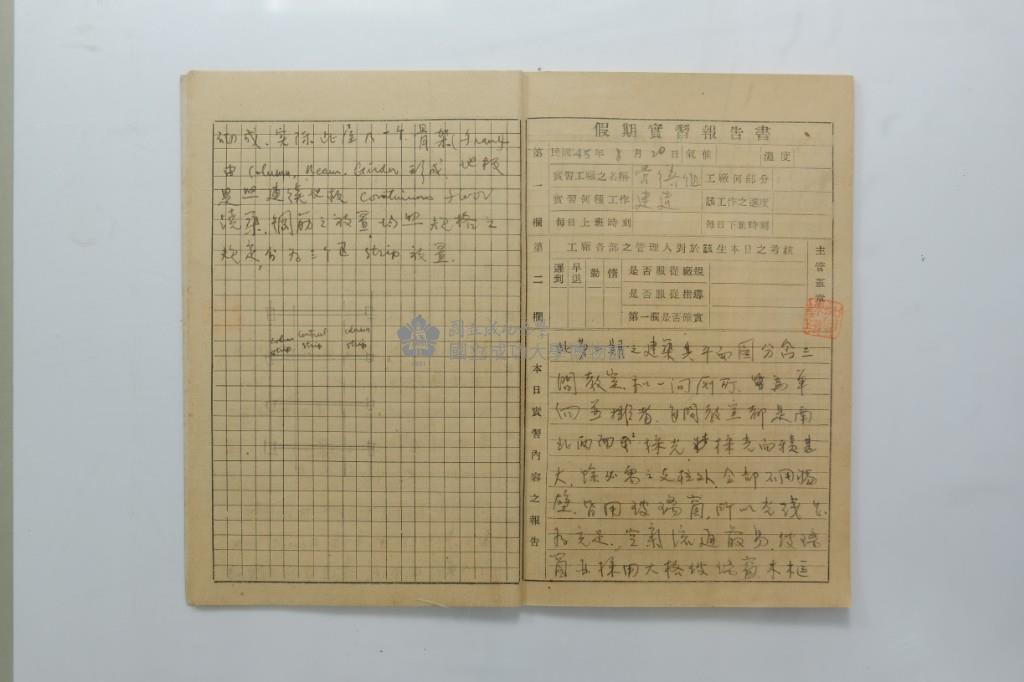 砌成,實際此屋乃一个骨架(frame)
由 Column, Beam, Girder 形成,地板
是照連續地板 Continuous floor
澆築,鋼筋之放置均照規格之
規定,分為三个區 strip 放置.
column strip
central strip
column strip
國立成功大學
國立成功大學博物館
假期實習報告書
第一欄
民國45年8月20日氣候 溫度
實習工廠之名稱 工廠何部分
實習何種工作 建造 該工作之進度
每日上班時刻 每日下班時刻
第二欄
工廠各部之管理人對於該生本日之考核
主管蓋章
遲到 早退 勤 惰
是否服從廠規
是否服從指導
第一欄是否確實
本日實習內容之報告
此第一期之建築其平面圖分含三
間教室和一间厠所,單
向並排着,每間教室都是南
北兩面採光,採光面積甚
大,除必需之支柱外,全部不用牆
壁,皆用玻璃窗,所以光线
充足,空氣流通最易,玻璃
窗且採用大格玻璃窗,木框